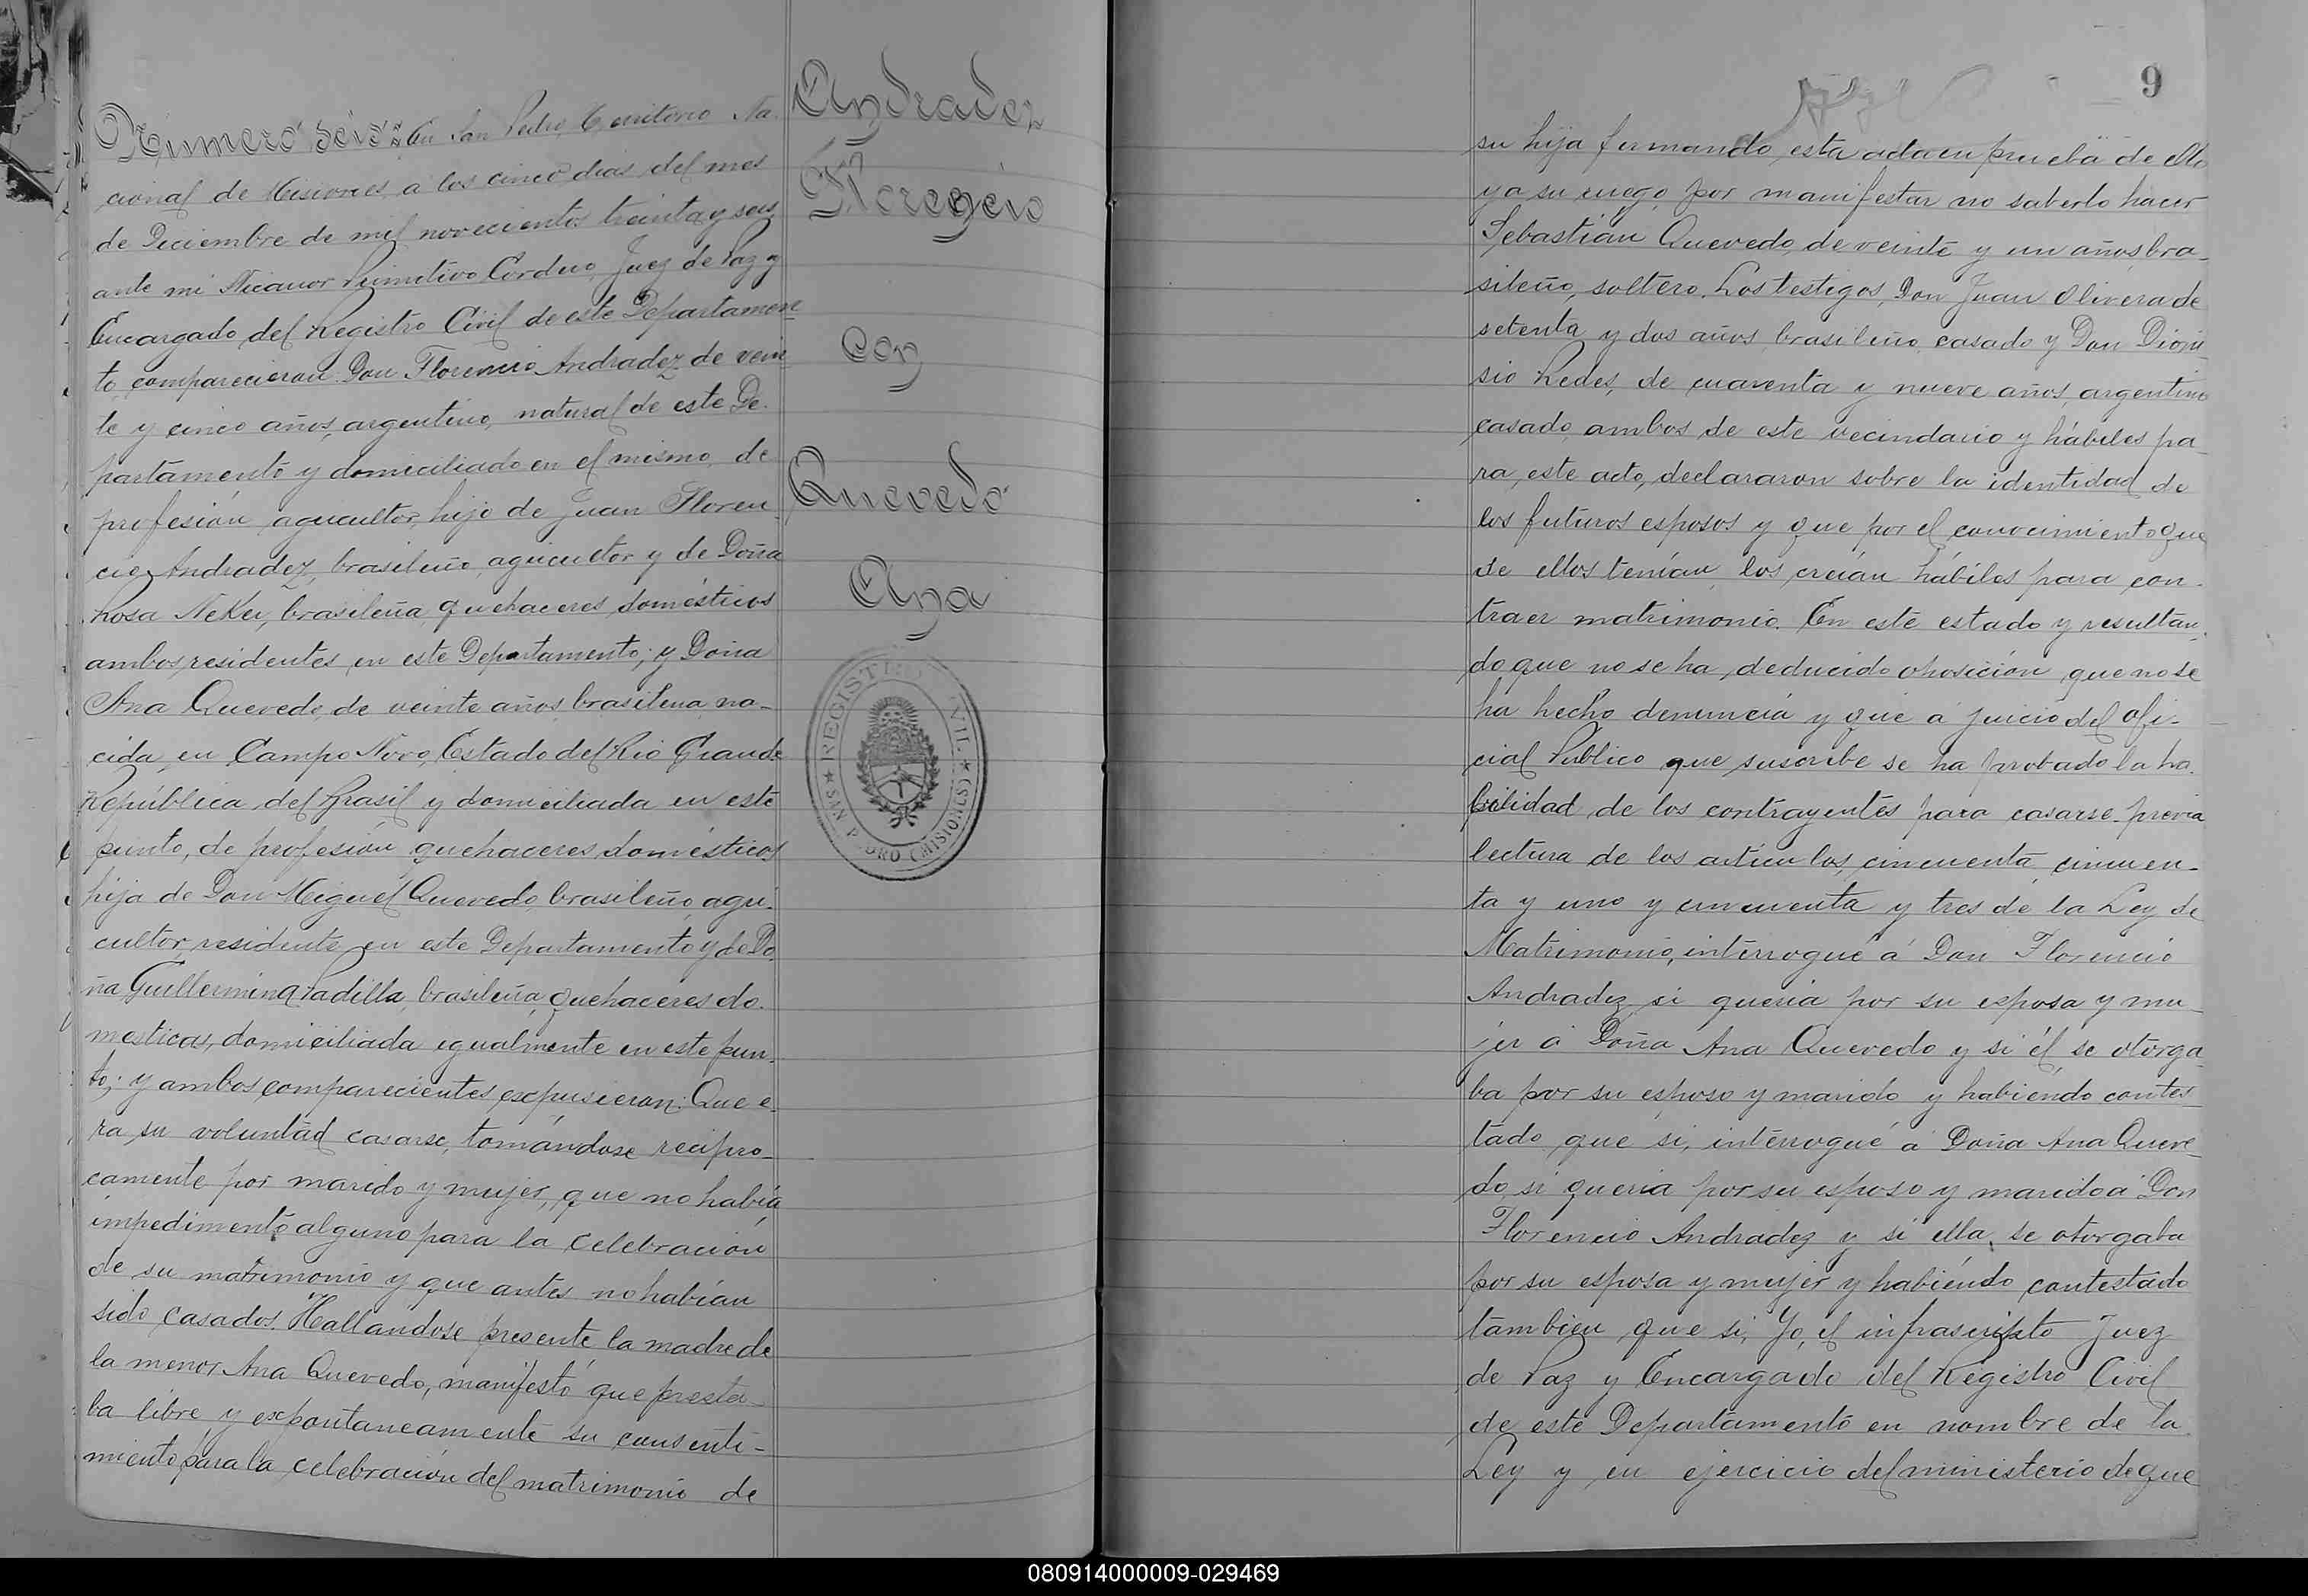 Número seis: En San Pedro, Territorio Na-
cional de Misiones, a los cinco dias del mes
de Diciembre de mil novecientos treinta y seis
ante mi Nicanor Primitivo Cordero, Juez de Paz y
Encargado del Registro Civil de este Departamen
to, comparecieron: Don Florencio Andradez de vein
te y cinco años, argentino, natural de este De-
partamento y domiciliado en el mismo, de
profesión agricultor, hijo de Juan Floren-
cio Andradez, brasileño, agricultor y de Doña
Rosa Neker, brasileña, quehaceres domésticos
ambos residentes en este Departamento; y Doña
Ana Quevedo, de veinte años, brasilena, na-
cida en Campo Novo, Estado del Rio Grande
República del Brasil y domiciliada en este
punto, de profesión quehaceres domésticos
hija de Don Miguel Quevedo, brasileño, agri-
cultor, residente en este Departamento y de Do
ña Guillermina Padilla, brasileña, quehaceres do-
mesticos, domiciliada igualmente en este pun-
to; y ambos comparecientes expusieron: Que e-
ra su voluntad casarse, tomándose recipro-
camente por marido y mujer, que no había
impedimento alguno para la celebración
de su matrimonio y que antes no habían
sido casados. Hallándose presente la madre de
la menor Ana Quevedo, manifestó que presta-
ba libre y expontaneamente su consenti-
miento para la celebración del matrimonio de
Andradez
Florencio
con
Quevedo
Ana
REGISTRO CIVIL
SAN PEDRO (MISIONES)
9
su hija firmando esta acta en prueba de ello
y a su ruego por manifestar no saberlo hacer
Sebastián Quevedo, de veinte y un años, bra-
sileño, soltero. Los testigos, Don Juan Olivera de
setenta y dos años, brasileño, casado y Don Dioni-
sio Redes, de cuarenta y nueve años, argentino
casado, ambos de este vecindario y hábiles pa-
ra este acto, declararon sobre la identidad de
los futuros esposos y que por el conocimiento que
de ellos tenían, los creían hábiles para con-
traer matrimonio. En este estado y resultan-
do que no se ha deducido oposición, que no se
ha hecho denuncia y que a juicio del ofi-
cial Público que suscribe se ha probado la ha-
bilidad de los contrayentes para casarse, previa
lectura de los artículos, cincuenta, cincuen-
ta y uno y cincuenta y tres de la Ley de
Matrimonio, interrogué á Don Florencio
Andradez si queria por su esposa y mu-
jer á Doña Ana Quevedo y si él se otorga-
ba por su esposo y marido y habiendo contes-
tado que si, interrogué á Doña Ana Queve-
do si queria por su esposo y marido á Don
Florencio Andradez y si ella se otorgaba
por su esposa y mujer y habiendo contestado
tambien que si, Yo, el infrascripto Juez
de Paz y Encargado del Registro Civil
de este Departamento en nombre de la
Ley y en ejercicio del ministerio de que
080914000009-029469